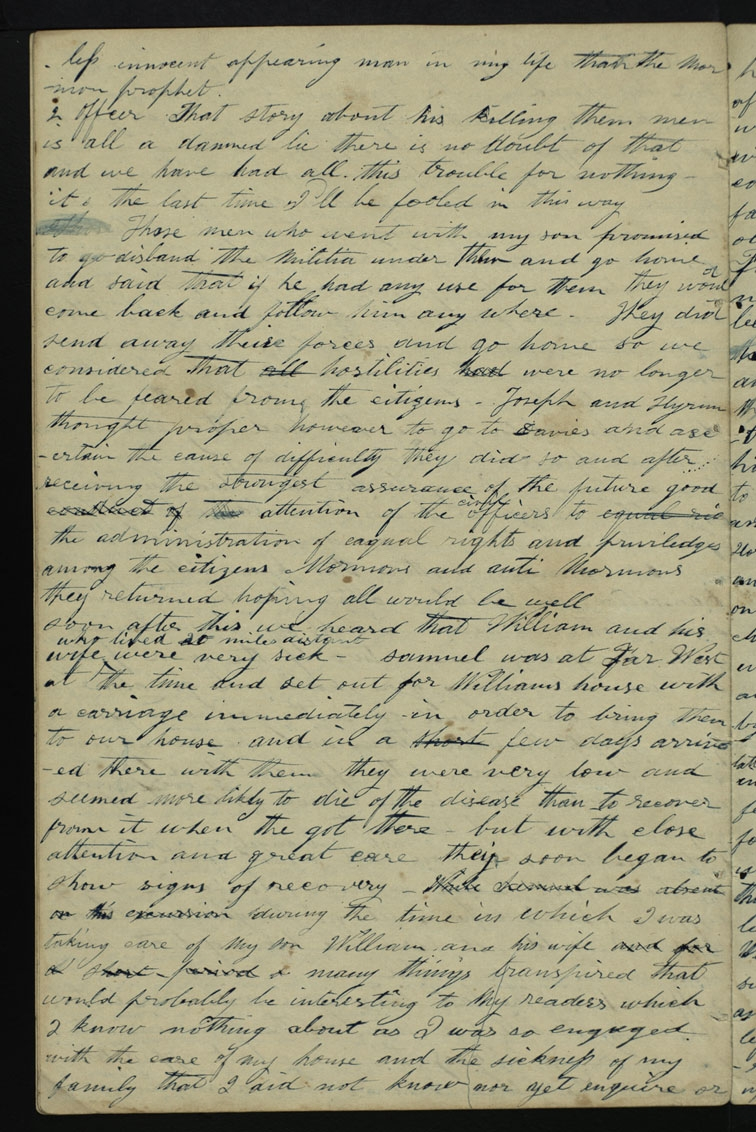 - less innocent appearing man in my life than the Mor
-mon prophet.
2 officer That story about his killing them men
is all a damned lie there is no doubt of that
and we have had all this trouble for nothing -
it s the last time I'll be fooled in this way
Those men who went with my son promised
to go disband the militia under them and go home
and said that if he had any use for them they would
come back and follow him any where - They did
send away their forces and go home so we
considered that all hostilities had were no longer
to be feared from the citizens - Joseph and Hyrum
thought proper however to go to Davies and asc
-ertain the cause of difficulty they did so and after
receiving the strongest assurance of the future good
conduct of attention of the civil officers to equal rig
the administration of eaqual rights and priviledges
among the citizens Mormons and anti Mormons
they returned hoping all would be well
soon after this we heard that William and his
who lived 20 miles distant
wife were very sick - samuel was at Far West
at the time and set out for Williams house with
a carriage immediately in order to bring them
to our house and in a short few days arriv
-ed there with them they were very low and
seemed more likely to die of the disease than to recover
from it when the got there - but with close
attention and great care they soon began to
show signs of recovery - While Samuel was absent
on this excursion during the time in which I was
taking care of my son William and his wife and for
a short period & many things transpired that
would probably be interesting to my readers which
I know nothing about as I was so engaged
with the care of my house and the sickness of my
family that I did not know nor yet enquire or